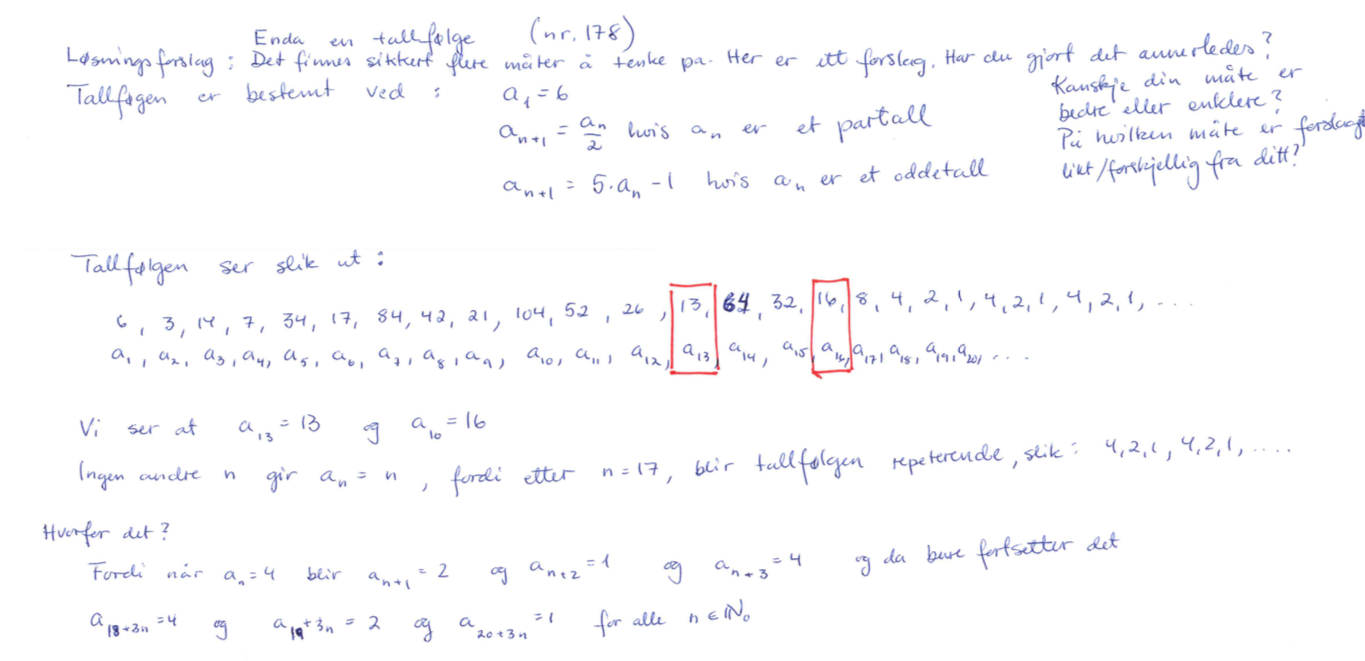 Enda en tallfølge (nr. 178)
Løsningsforslag : Det finnes sikkert flere måter å tenke på. Her er ett forslag. Har du gjort det annerledes?
Kanskje din måte er
bedre eller enklere?
På hvilken måte er forslaget
likt/forskjellig fra ditt?
Tallføgen er bestemt ved : a₁ = 6
aₙ₊₁ = aₙ/2 hvis aₙ er et partall
aₙ₊₁ = 5·aₙ - 1 hvis aₙ er et oddetall
Tallfølgen ser slik ut :
6, 3, 14, 7, 34, 17, 84, 42, 21, 104, 52, 26, 13, 64, 32, 16, 8, 4, 2, 1, 4, 2, 1, 4, 2, 1, ...
a₁, a₂, a₃, a₄, a₅, a₆, a₇, a₈, a₉, a₁₀, a₁₁, a₁₂, a₁₃, a₁₄, a₁₅, a₁₆, a₁₇, a₁₈, a₁₉, a₂₀, ...
Vi ser at a₁₃ = 13 og a₁₆ = 16
Ingen andre n gir aₙ = n, fordi etter n = 17, blir tallfølgen repeterende, slik : 4, 2, 1, 4, 2, 1, ....
Hvorfor det?
Fordi når aₙ = 4 blir aₙ₊₁ = 2 og aₙ₊₂ = 1 og aₙ₊₃ = 4 og da bare fortsetter det
a₁₈₊₃ₙ = 4 og a₁₉₊₃ₙ = 2 og a₂₀₊₃ₙ = 1 for alle n ∈ ℕ₀